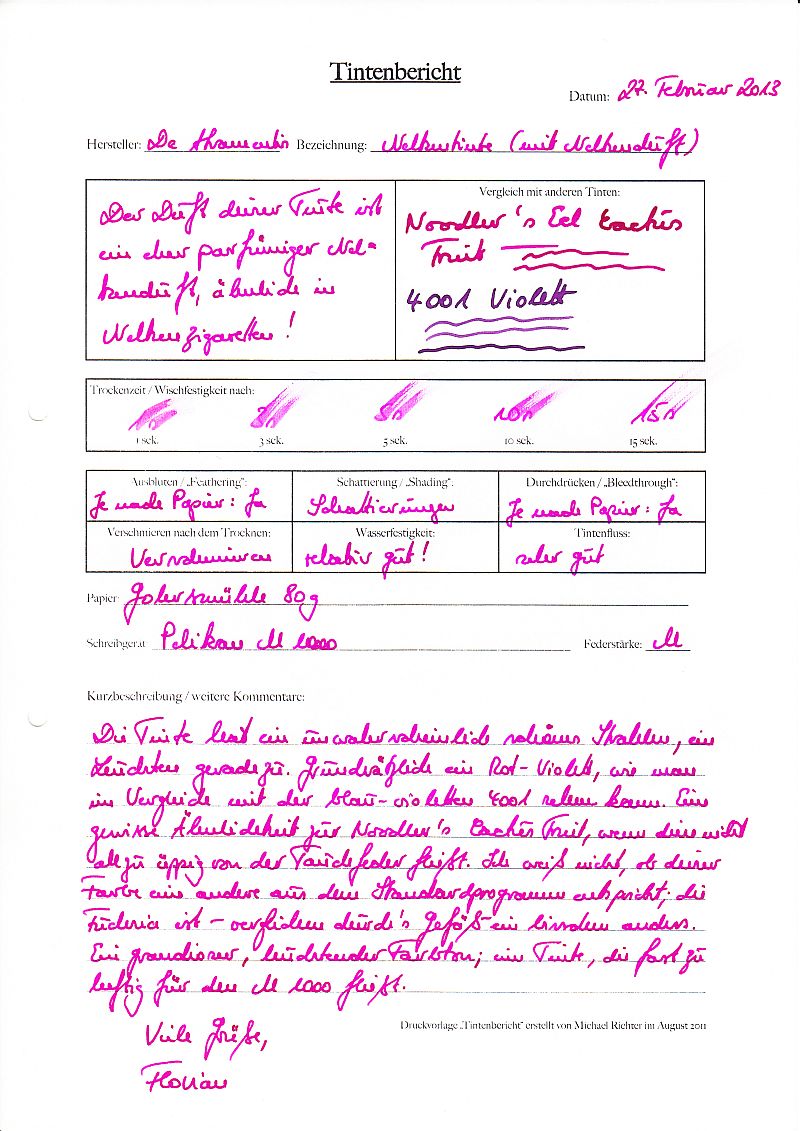 Tintenbericht
Datum: 27. Februar 2013
Hersteller: De Atramentis Bezeichnung: Nelkentinte (mit Nelkenduft)
Der Duft dieser Tinte ist
ein eher parfümiger Nel-
kenduft, ähnlich in
Nelkenzigaretten!
Vergleich mit anderen Tinten:
Noodler's Eel Cactus
Fruit
4001 Violett
Trockenzeit / Wischfestigkeit nach:
1s 3s 5s 10s 15s
1 sek. 3 sek. 5 sek. 10 sek. 15 sek.
Ausbluten / „Feathering": Schattierung / „Shading": Durchdrücken / „Bleedthrough":
Je nach Papier: Ja Schattierungen Je nach Papier: Ja
Verschmieren nach dem Trocknen: Wasserfestigkeit: Tintenfluss:
Verschmieren relativ gut! sehr gut
Papier: Gohrsmühle 80g
Schreibgerät: Pelikan M 1000 Federstärke: M
Kurzbeschreibung / weitere Kommentare:
Die Tinte hat ein unwahrscheinlich schönes Strahlen, ein
Leuchten geradezu. Grundsätzlich ein Rot-Violett, wie man
im Vergleich mit der blau-violetten 4001 sehen kann. Eine
gewisse Ähnlichkeit zur Noodler's Cactus Fruit, wenn diese nicht
allzu üppig von der Tauchfeder fließt. Ich weiß nicht, ob dieser
Farbe eine andere aus dem Standardprogramm entspricht; die
Fuchsia ist – verglichen durch's Gefäß – ein bisschen anders.
Ein grandioser, leuchtender Farbton; eine Tinte, die fast zu
heftig für den M 1000 fließt.
Viele Grüße,
Florian
Druckvorlage „Tintenbericht" erstellt von Michael Richter im August 2011